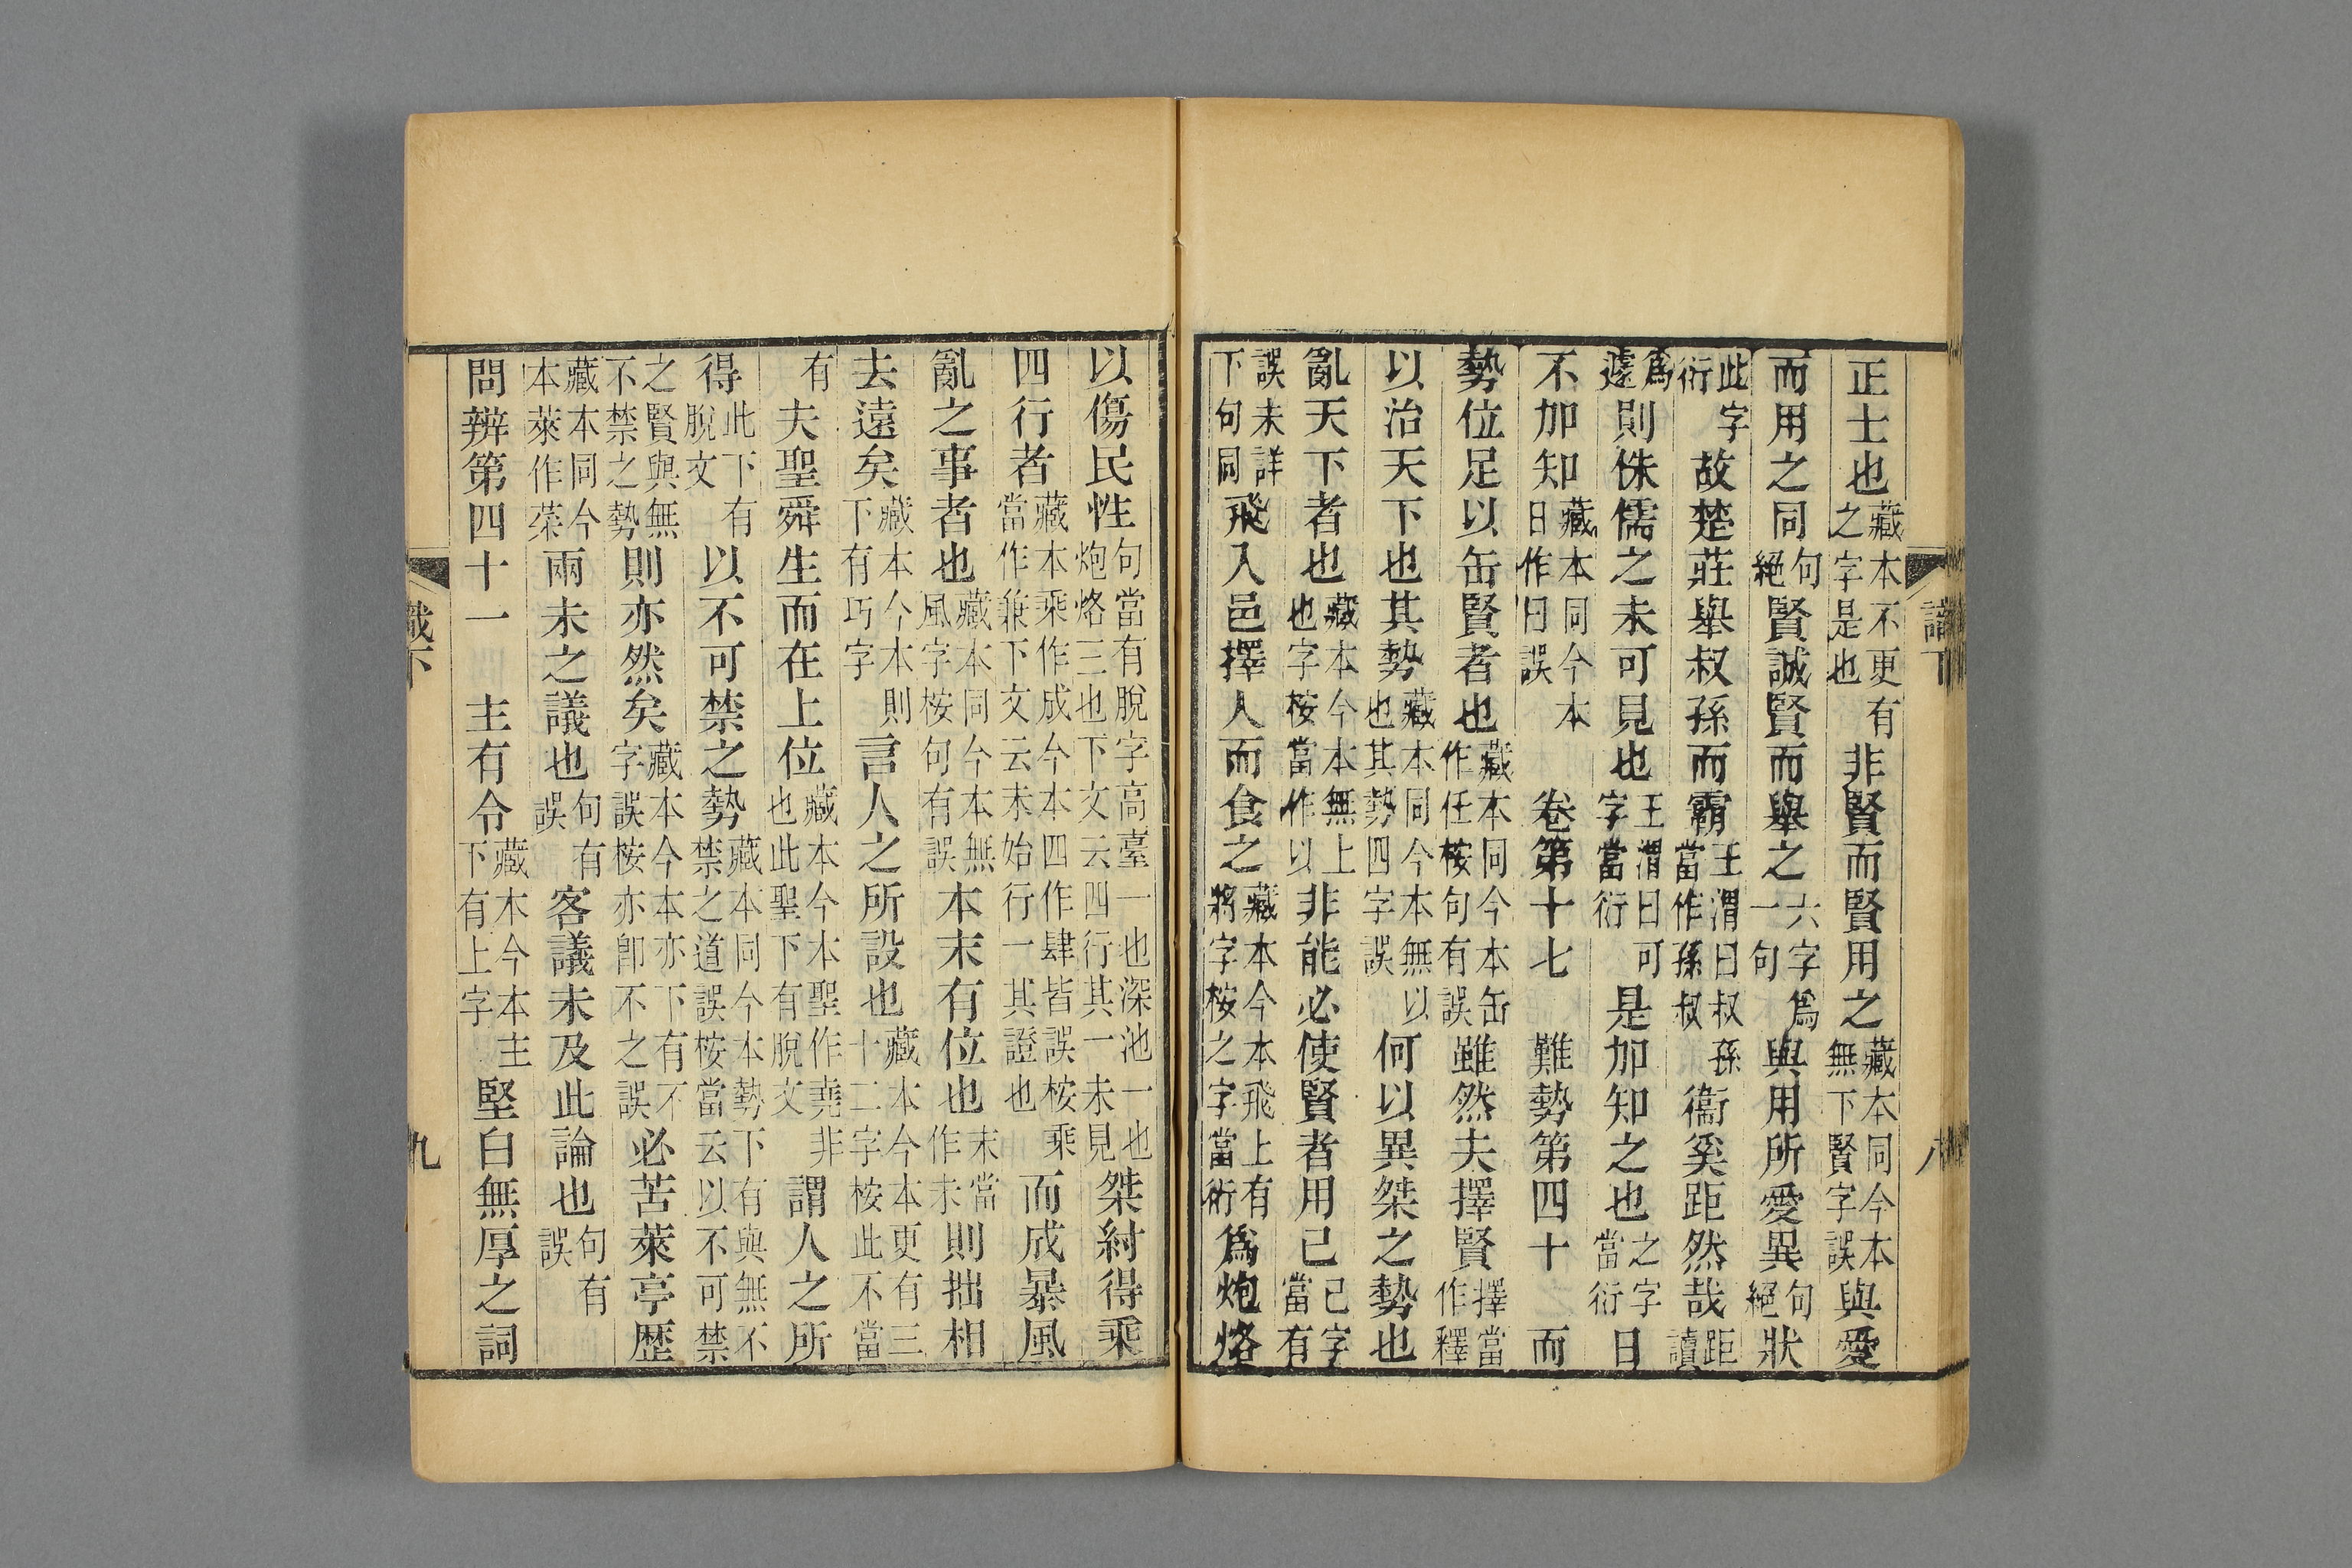 正士也藏本不更有之字是也非賢而賢用之藏本同今本無下賢字誤與愛
而用之同句絕賢誠賢而舉之六字為一句與用所愛異句絕狀
此字衍故楚莊舉叔孫而霸王渭曰叔孫當作孫叔衞奚距然哉距讀
為遽則侏儒之未可見也王渭曰可字當衍是加知之也之字當衍日
不加知藏本同今本日作曰誤 卷第十七 難勢第四十 而
勢位足以缶賢者也藏本同今本缶作任桉句有誤雖然夫擇賢擇當作釋
以治天下也其勢藏本同今本無以也其勢四字誤何以異桀之勢也
亂天下者也藏本今本無上也字桉當作以非能必使賢者用已已字當有
誤未詳下句同飛入邑擇人而食之藏本今本飛上有將字桉之字當衍為炮烙
以傷民性句當有脫字高臺一也深池一也炮烙三也下文云四行其一未見桀紂得乘
四行者藏本乘作成今本四作肆皆誤桉乘當作兼下文云未始行一其證也而成暴風
亂之事者也藏本同今本無風字桉句有誤本末有位也末當作未則拙相
去遠矣藏本今本則下有巧字言人之所設也藏本今本更有三十二字桉此不當
有夫聖舜生而在上位藏本今本聖作堯非也此聖下有脫文謂人之所
得此下有脫文以不可禁之勢藏本同今本勢下有與無不禁之道誤桉當云以不可禁
之賢與無不禁之勢則亦然矣藏本今本亦下有不字誤桉亦卽不之誤必苦萊亭歷
藏本同今本萊作菜兩未之議也句有誤客議未及此論也句有誤
問辨第四十一 主有令藏木今本主下有上字堅白無厚之詞
識下
九